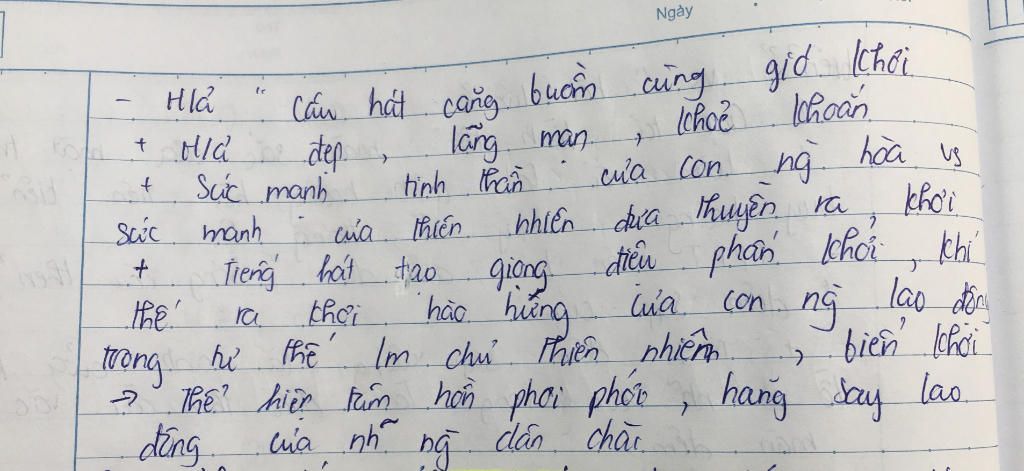 Ngày
- H/ả " Câu hát căng buồm cùng gió khơi
+ H/ả đẹp, lãng mạn, khoẻ khoắn
+ Sức mạnh tinh thần của con ng hòa vs
sức mạnh của thiên nhiên đưa thuyền ra, khơi
+ Tiếng hát tạo giọng điệu phấn khởi, khí
thế ra khơi hào hứng của con ng lao động
trong tư thế lm chủ thiên nhiên, biển khơi
→ Thể hiện tâm hồn phơi phới, hăng say lao
động của nhữ ng dân chài